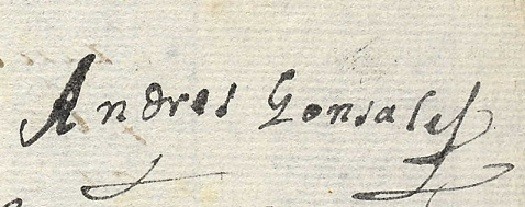 Andres Gonsales